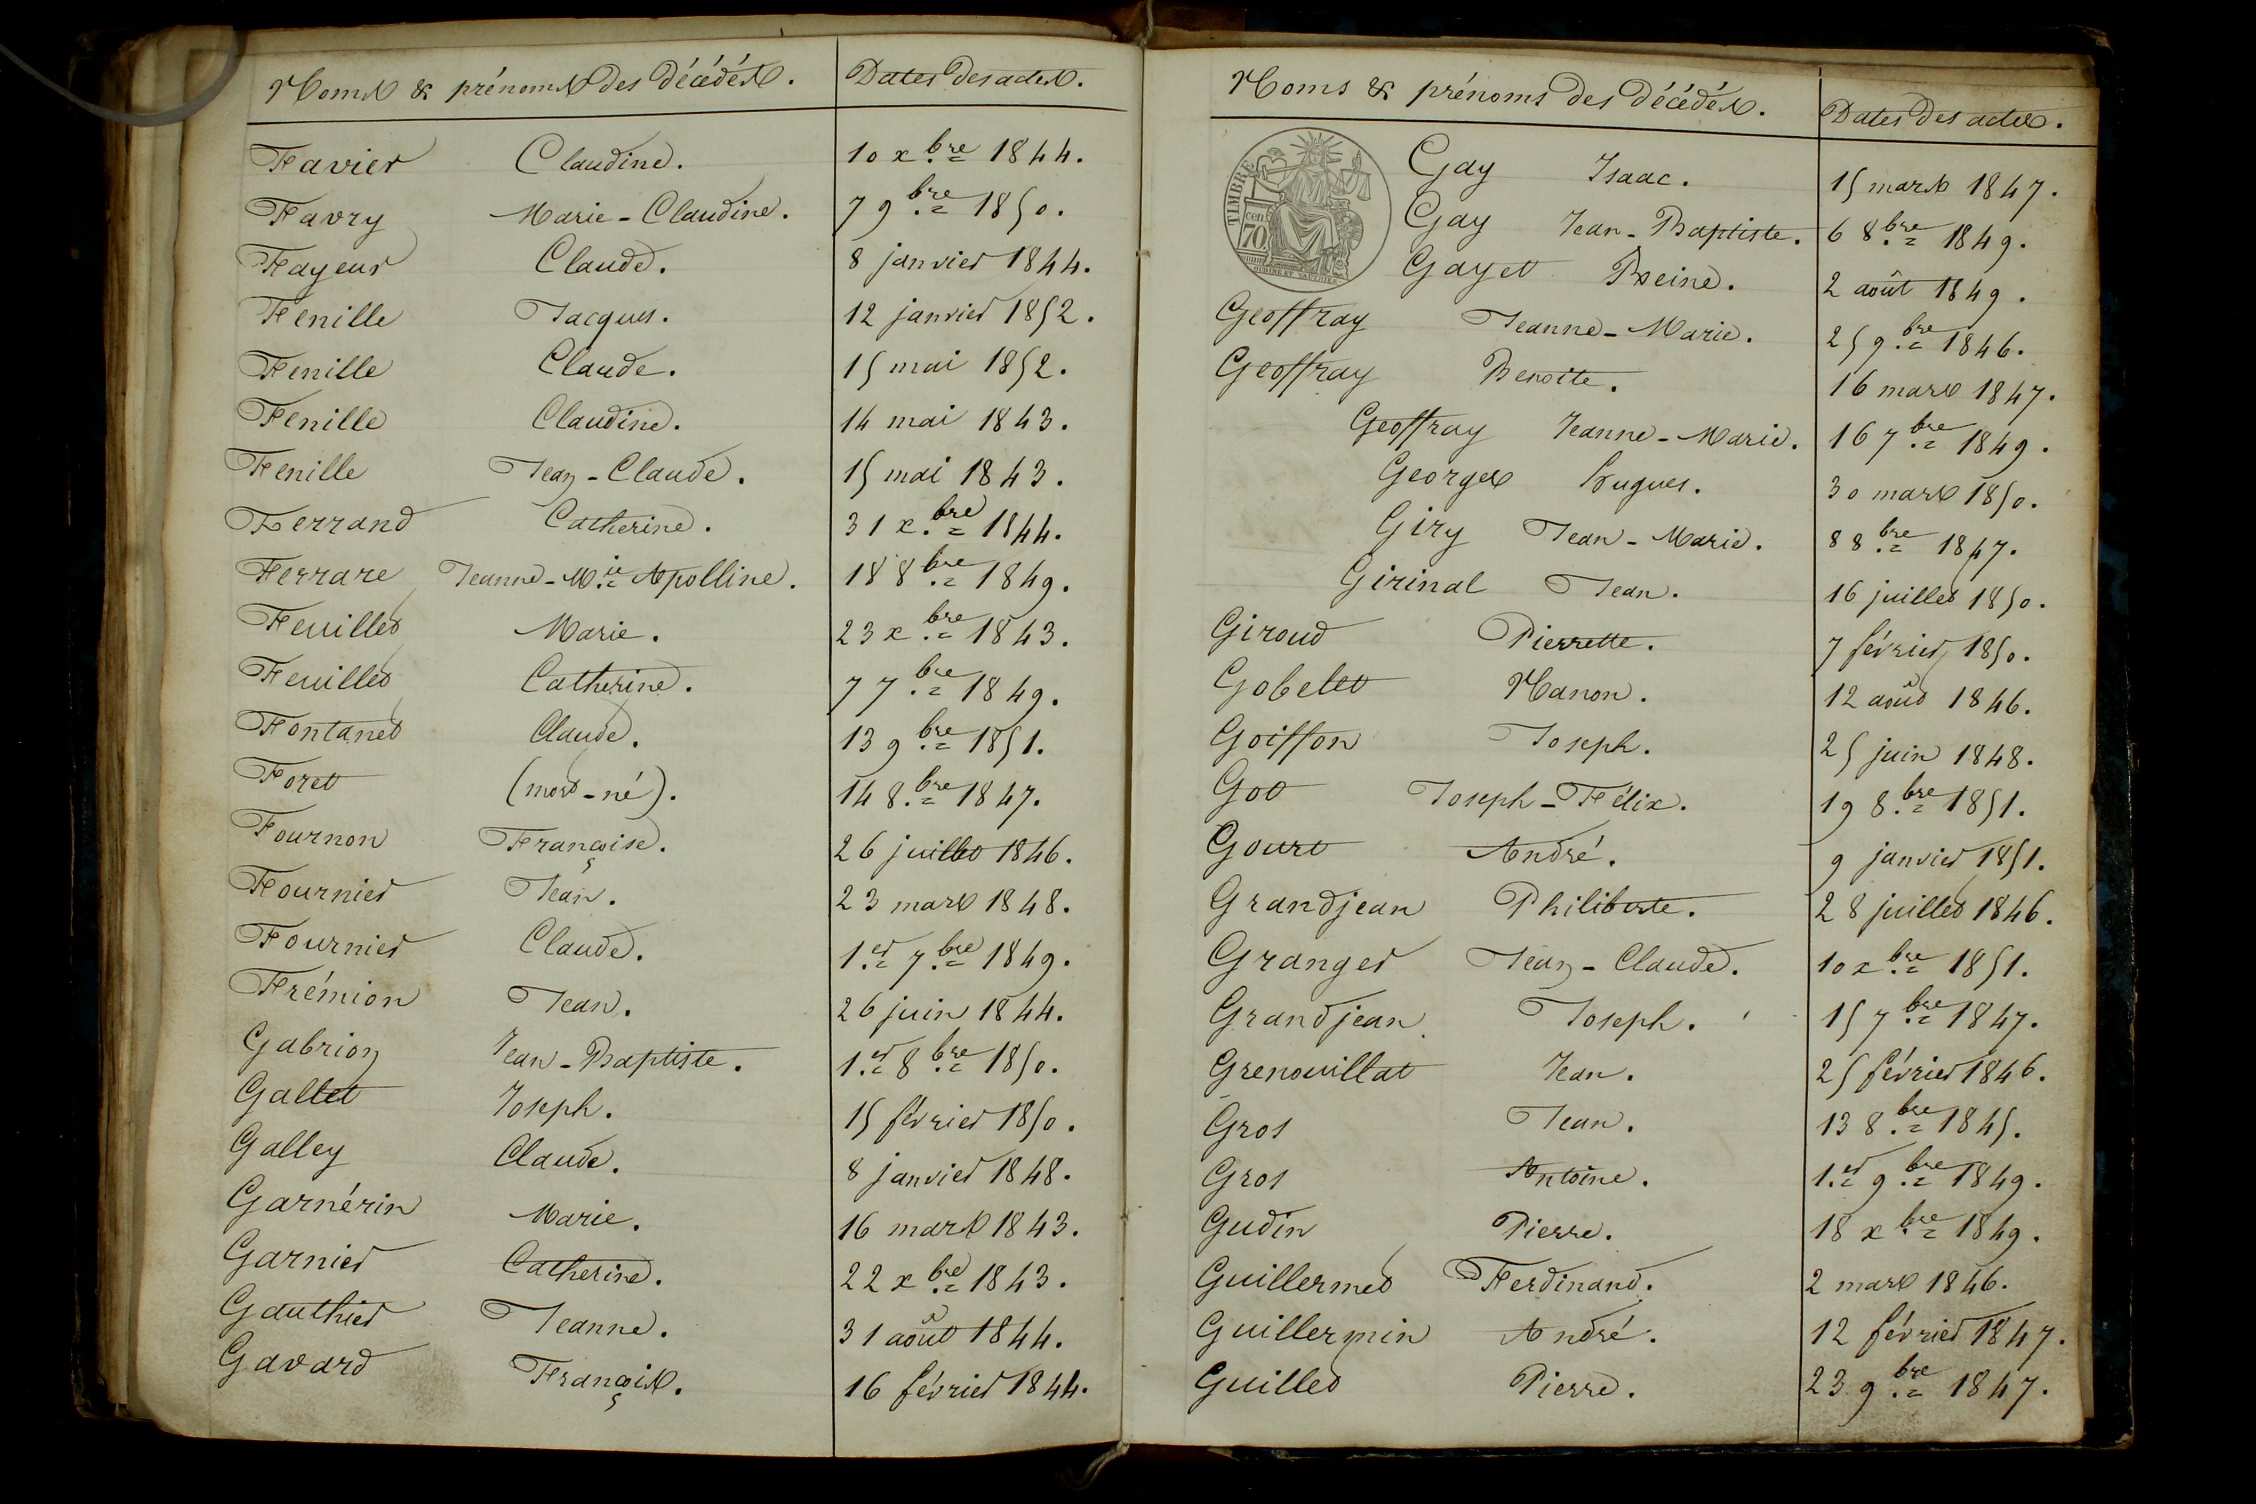 Noms & prénoms des décédés. Dates des actes.
Favier Claudine. 10 xbre 1844.
Favry Marie-Claudine. 7 9bre 1850.
Fayeur Claude. 8 janvier 1844.
Fenille Jacques. 12 janvier 1852.
Fenille Claude. 15 mai 1852.
Fenille Claudine. 14 mai 1843.
Fenille Jean-Claude. 15 mai 1843.
Ferrand Catherine. 31 x.bre 1844.
Ferrare Jeanne-M.ie Apolline. 18 8bre 1849.
Feuillet Marie. 23 x.bre 1843.
Feuillet Catherine. 7 7.bre 1849.
Fontanet Claude. 13 9.bre 1851.
Foret (mort-né). 14 8.bre 1847.
Fournon Françoise. 26 juillet 1846.
Fournier Jean. 23 mars 1848.
Fournier Claude. 1.er 7.bre 1849.
Frémion Jean. 26 juin 1844.
Gabrion Jean-Baptiste. 1.er 8.bre 1850.
Gallet Joseph. 15 février 1850.
Galley Claude. 8 janvier 1848.
Garnérin Marie. 16 mars 1843.
Garnier Catherine. 22 x.bre 1843.
Gauthier Jeanne. 31 août 1844.
Gavard François. 16 février 1844.
Noms & prénoms des décédés. Dates des actes.
TIMBRE
cen
70.
Gay Isaac. 15 mars 1847.
Gay Jean-Baptiste. 6 8.bre 1849.
Gayet Reine. 2 août 1849.
Geoffray Jeanne-Marie. 25 9.bre 1846.
Geoffray Benoite. 16 mars 1847.
Geoffray Jeanne-Marie. 16 7.bre 1849.
Georges Hugues. 30 mars 1850.
Giry Jean-Marie. 8 8.bre 1847.
Girinal Jean. 16 juillet 1850.
Giroud Pierrette. 7 février 1850.
Gobelet Manon. 12 août 1846.
Goiffon Joseph. 25 juin 1848.
Got Joseph-Félix. 19 8.bre 1851.
Gourt André. 9 janvier 1851.
Grandjean Philiberte. 28 juillet 1846.
Granger Jean-Claude. 10 x.bre 1851.
Grandjean Joseph. 15 7.bre 1847.
Grenouillat Jean. 25 février 1846.
Gros Jean. 13 8.bre 1845.
Gros Antoine. 1.er 9.bre 1849.
Gudin Pierre. 18 x.bre 1849.
Guillermet Ferdinand. 2 mars 1846.
Guillermin André. 12 février 1847.
Guillet Pierre. 23 9.bre 1847.